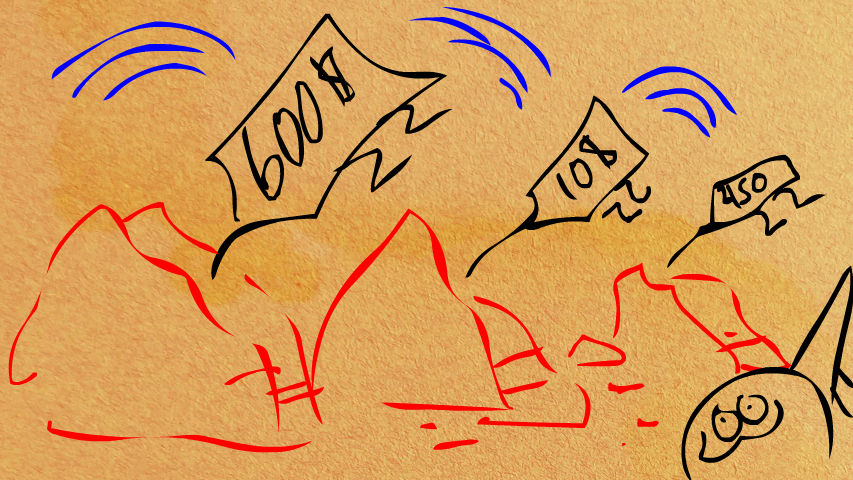 600$
10$
450